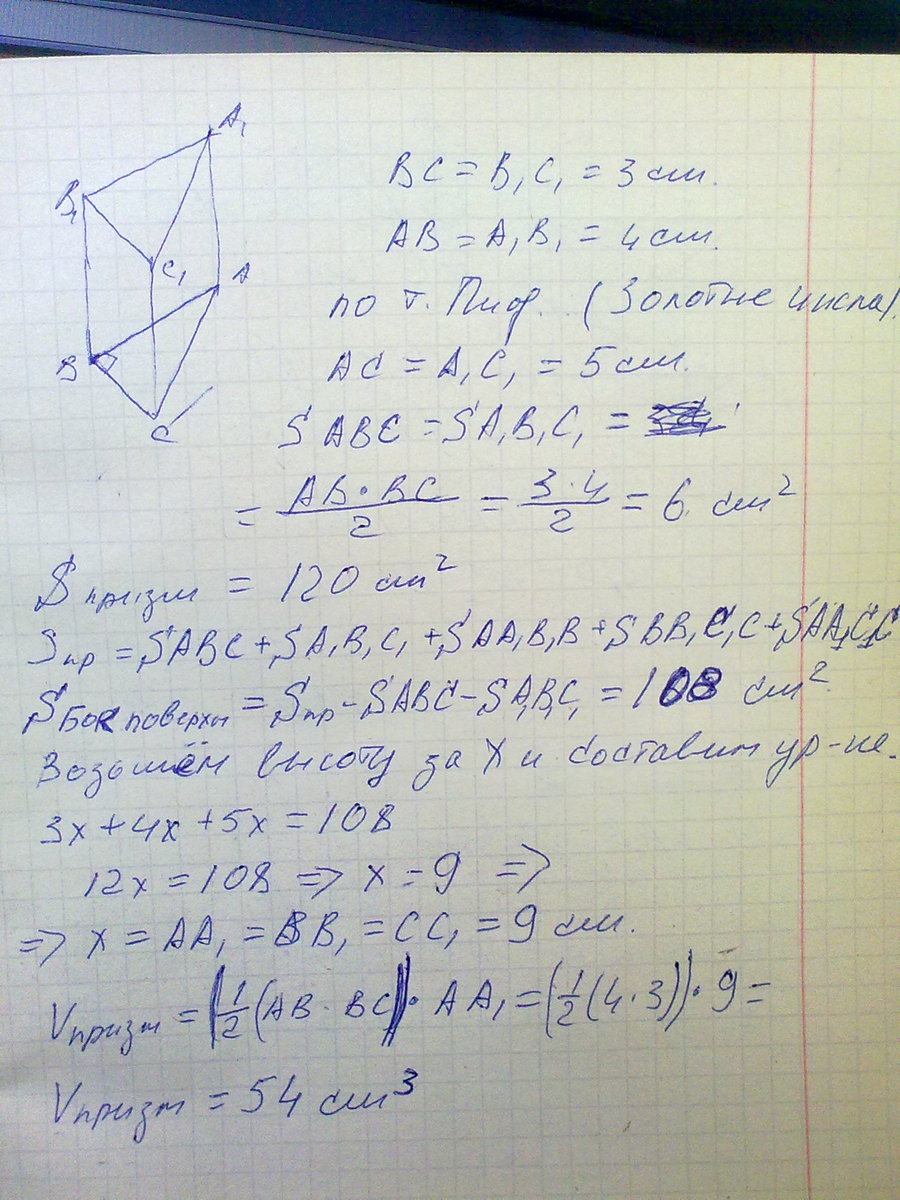 A₁
B₁
C₁
A
B
C
BC = B₁C₁ = 3 см.
AB = A₁B₁ = 4 см.
по т. Пиф. (Золотые числа).
AC = A₁C₁ = 5 см.
S ABC = S A₁B₁C₁ =
= AB · BC / 2 = 3 · 4 / 2 = 6 см²
S призм = 120 см²
Sпр = SABC + SA₁B₁C₁ + SAA₁B₁B + SBB₁C₁C + SAA₁C₁C
S бок поверхн = Sпр - SABC - SA₁B₁C₁ = 108 см²
Возьмём высоту за X и составим ур-ие.
3x + 4x + 5x = 108
12x = 108 => x = 9 =>
=> x = AA₁ = BB₁ = CC₁ = 9 см.
Vпризм = (1/2 (AB · BC)) · AA₁ = (1/2 (4 · 3)) · 9 =
Vпризм = 54 см³